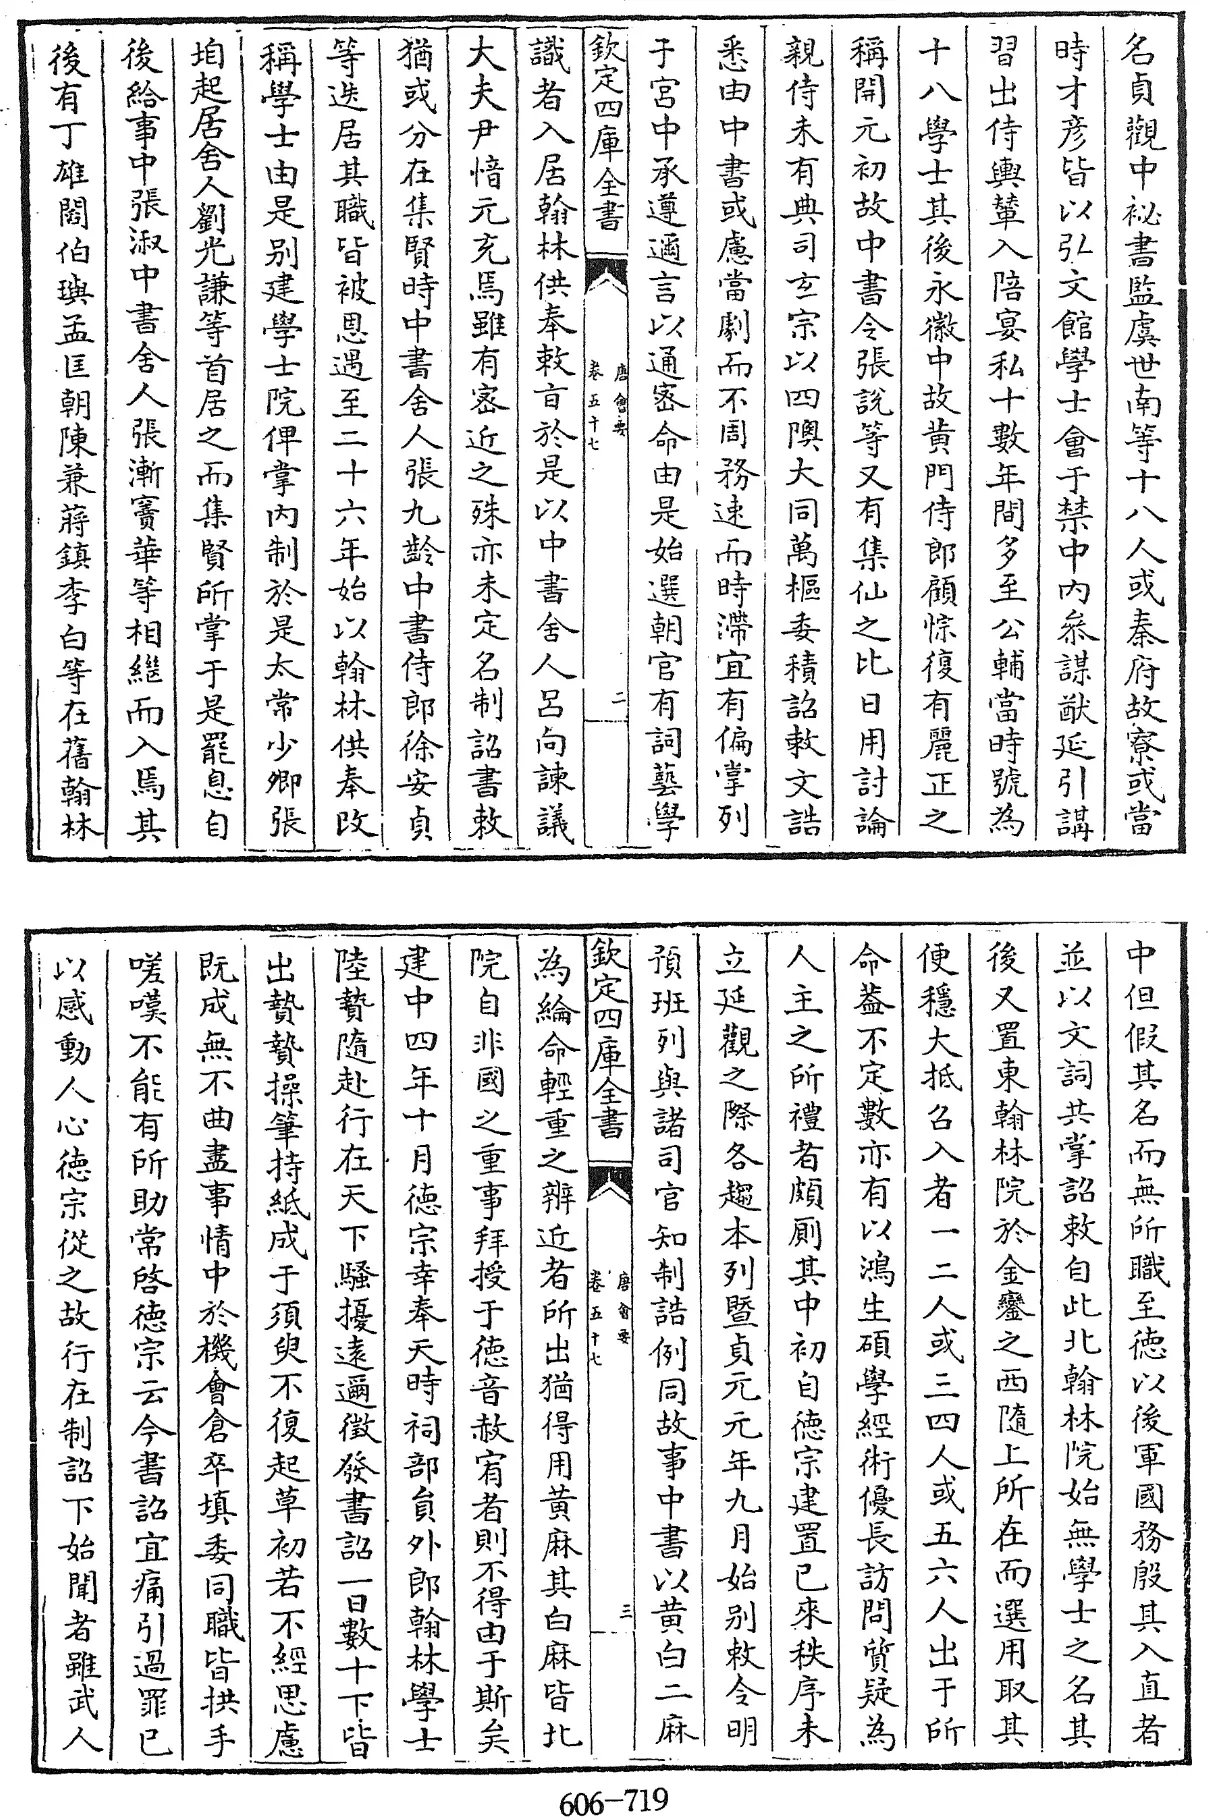 名貞觀中祕書監虞世南等十八人或秦府故寮或當
時才彦皆以弘文館學士會于禁中内叅謀猷延引講
習出侍輿輦入陪宴私十數年間多至公輔當時號為
十八學士其後永徽中故黄門侍郎顧悰復有麗正之
稱開元初故中書令張說等又有集仙之比日用討論
親侍未有典司玄宗以四隩大同萬樞委積詔敕文誥
悉由中書或慮當劇而不周務速而時滯宜有偏掌列
于宮中承遵邇言以通密命由是始選朝官有詞藝學
欽定四庫全書
唐會要
卷五十七
二
識者入居翰林供奉敕㫖於是以中書舍人呂向諫議
大夫尹愔元充焉雖有密近之殊亦未定名制詔書敕
猶或分在集賢時中書舍人張九齡中書侍郎徐安貞
等迭居其職皆被恩遇至二十六年始以翰林供奉改
稱學士由是别建學士院俾掌内制於是太常少卿張
垍起居舍人劉光謙等首居之而集賢所掌于是罷息自
後給事中張淑中書舍人張漸竇華等相繼而入焉其
後有丁雄閻伯璵孟匡朝陳兼蔣鎮李白等在舊翰林
中但假其名而無所職至德以後軍國務殷其入直者
並以文詞共掌詔敕自此北翰林院始無學士之名其
後又置東翰林院於金鑾之西隨上所在而選用取其
便穩大抵召入者一二人或三四人或五六人出于所
命葢不定數亦有以鴻生碩學經術優長訪問質疑為
人主之所禮者頗厠其中初自德宗建置已來秩序未
立延觀之際各趨本列暨貞元元年九月始别敕令明
預班列與諸司官知制誥例同故事中書以黄白二麻
欽定四庫全書
唐會要
卷五十七
三
為綸命輕重之辨近者所出猶得用黄麻其白麻皆北
院自非國之重事拜授于德音赦宥者則不得由于斯矣
建中四年十月德宗幸奉天時祠部員外郎翰林學士
陸贄隨赴行在天下騷擾遠邇徵發書詔一日數十下皆
出贄贄操筆持紙成于須臾不復起草初若不經思慮
既成無不曲盡事情中於機會倉卒填委同職皆拱手
嗟嘆不能有所助常啓德宗云今書詔宜痛引過罪已
以感動人心德宗從之故行在制詔下始聞者雖武人
606-719